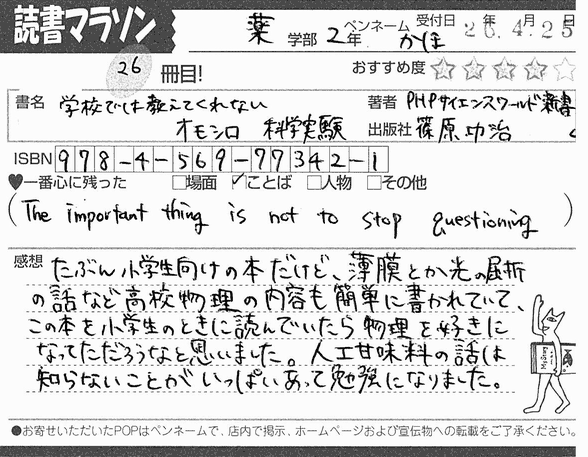 読書マラソン
薬 学部 2年 ペンネーム かほ 受付日 26年 4.25
26 冊目! おすすめ度 ☆☆☆☆☆
書名 学校では教えてくれない 著者 PHPサイエンスワールド新書
オモシロ 科学実験 出版社 篠原功治
ISBN 978-4-569-77342-1
♥一番心に残った □場面 ☑ことば □人物 □その他
(The important thing is not to stop questioning)
感想 たぶん小学生向けの本だけど、薄膜とか光の屈折
の話など高校物理の内容も簡単に書かれていて、
この本を小学生のときに読んでいたら物理を好きに
なってただろうなと思いました。人工甘味料の話は
知らないことがいっぱいあって勉強になりました。
●お寄せいただいたPOPはペンネームで、店内で掲示、ホームページおよび宣伝物への転載をご了承ください。